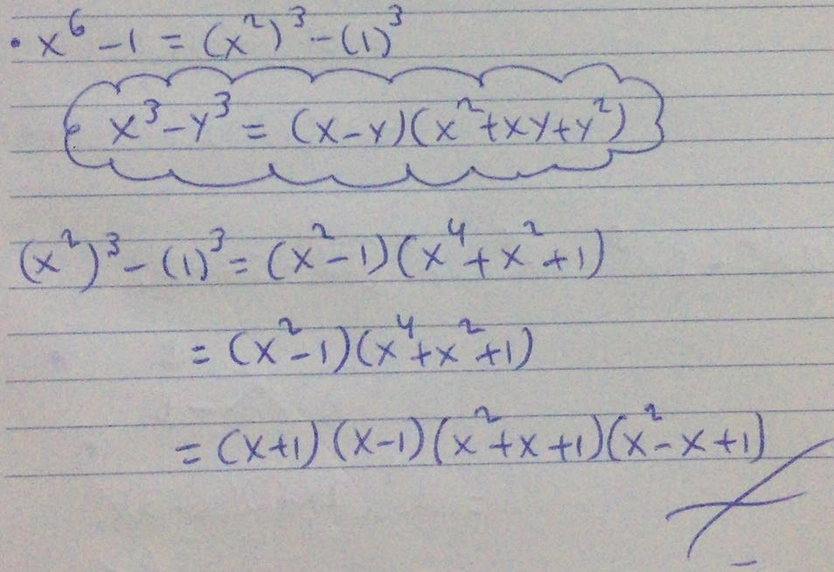 • x⁶ - 1 = (x²)³ - (1)³
x³ - y³ = (x - y)(x² + xy + y²)
(x²)³ - (1)³ = (x² - 1)(x⁴ + x² + 1)
= (x² - 1)(x⁴ + x² + 1)
= (x + 1)(x - 1)(x² + x + 1)(x² - x + 1)